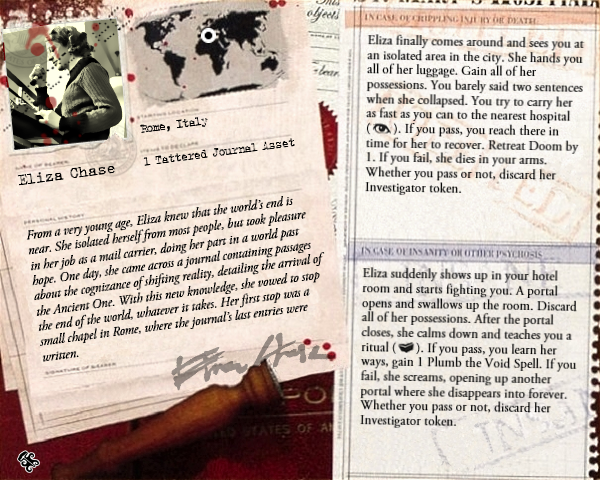 STARTING LOCATION
Rome, Italy
ITEMS TO DECLARE
1 Tattered Journal Asset
NAME OF BEARER
Eliza Chase
PERSONAL HISTORY
From a very young age, Eliza knew that the world's end is
near. She isolated herself from most people, but took pleasure
in her job as a mail carrier, doing her part in a world past
hope. One day, she came across a journal containing passages
about the cognizance of shifting reality, detailing the arrival of
the Ancient One. With this new knowledge, she vowed to stop
the end of the world, whatever it takes. Her first stop was a
small chapel in Rome, where the journal's last entries were
written.
SIGNATURE OF BEARER
IN CASE OF CRIPPLING INJURY OR DEATH
Eliza finally comes around and sees you at
an isolated area in the city. She hands you
all of her luggage. Gain all of her
possessions. You barely said two sentences
when she collapsed. You try to carry her
as fast as you can to the nearest hospital
( ). If you pass, you reach there in
time for her to recover. Retreat Doom by
1. If you fail, she dies in your arms.
Whether you pass or not, discard her
Investigator token.
IN CASE OF INSANITY OR OTHER PSYCHOSIS
Eliza suddenly shows up in your hotel
room and starts fighting you. A portal
opens and swallows up the room. Discard
all of her possessions. After the portal
closes, she calms down and teaches you a
ritual ( ). If you pass, you learn her
ways, gain 1 Plumb the Void Spell. If you
fail, she screams, opening up another
portal where she disappears into forever.
Whether you pass or not, discard her
Investigator token.